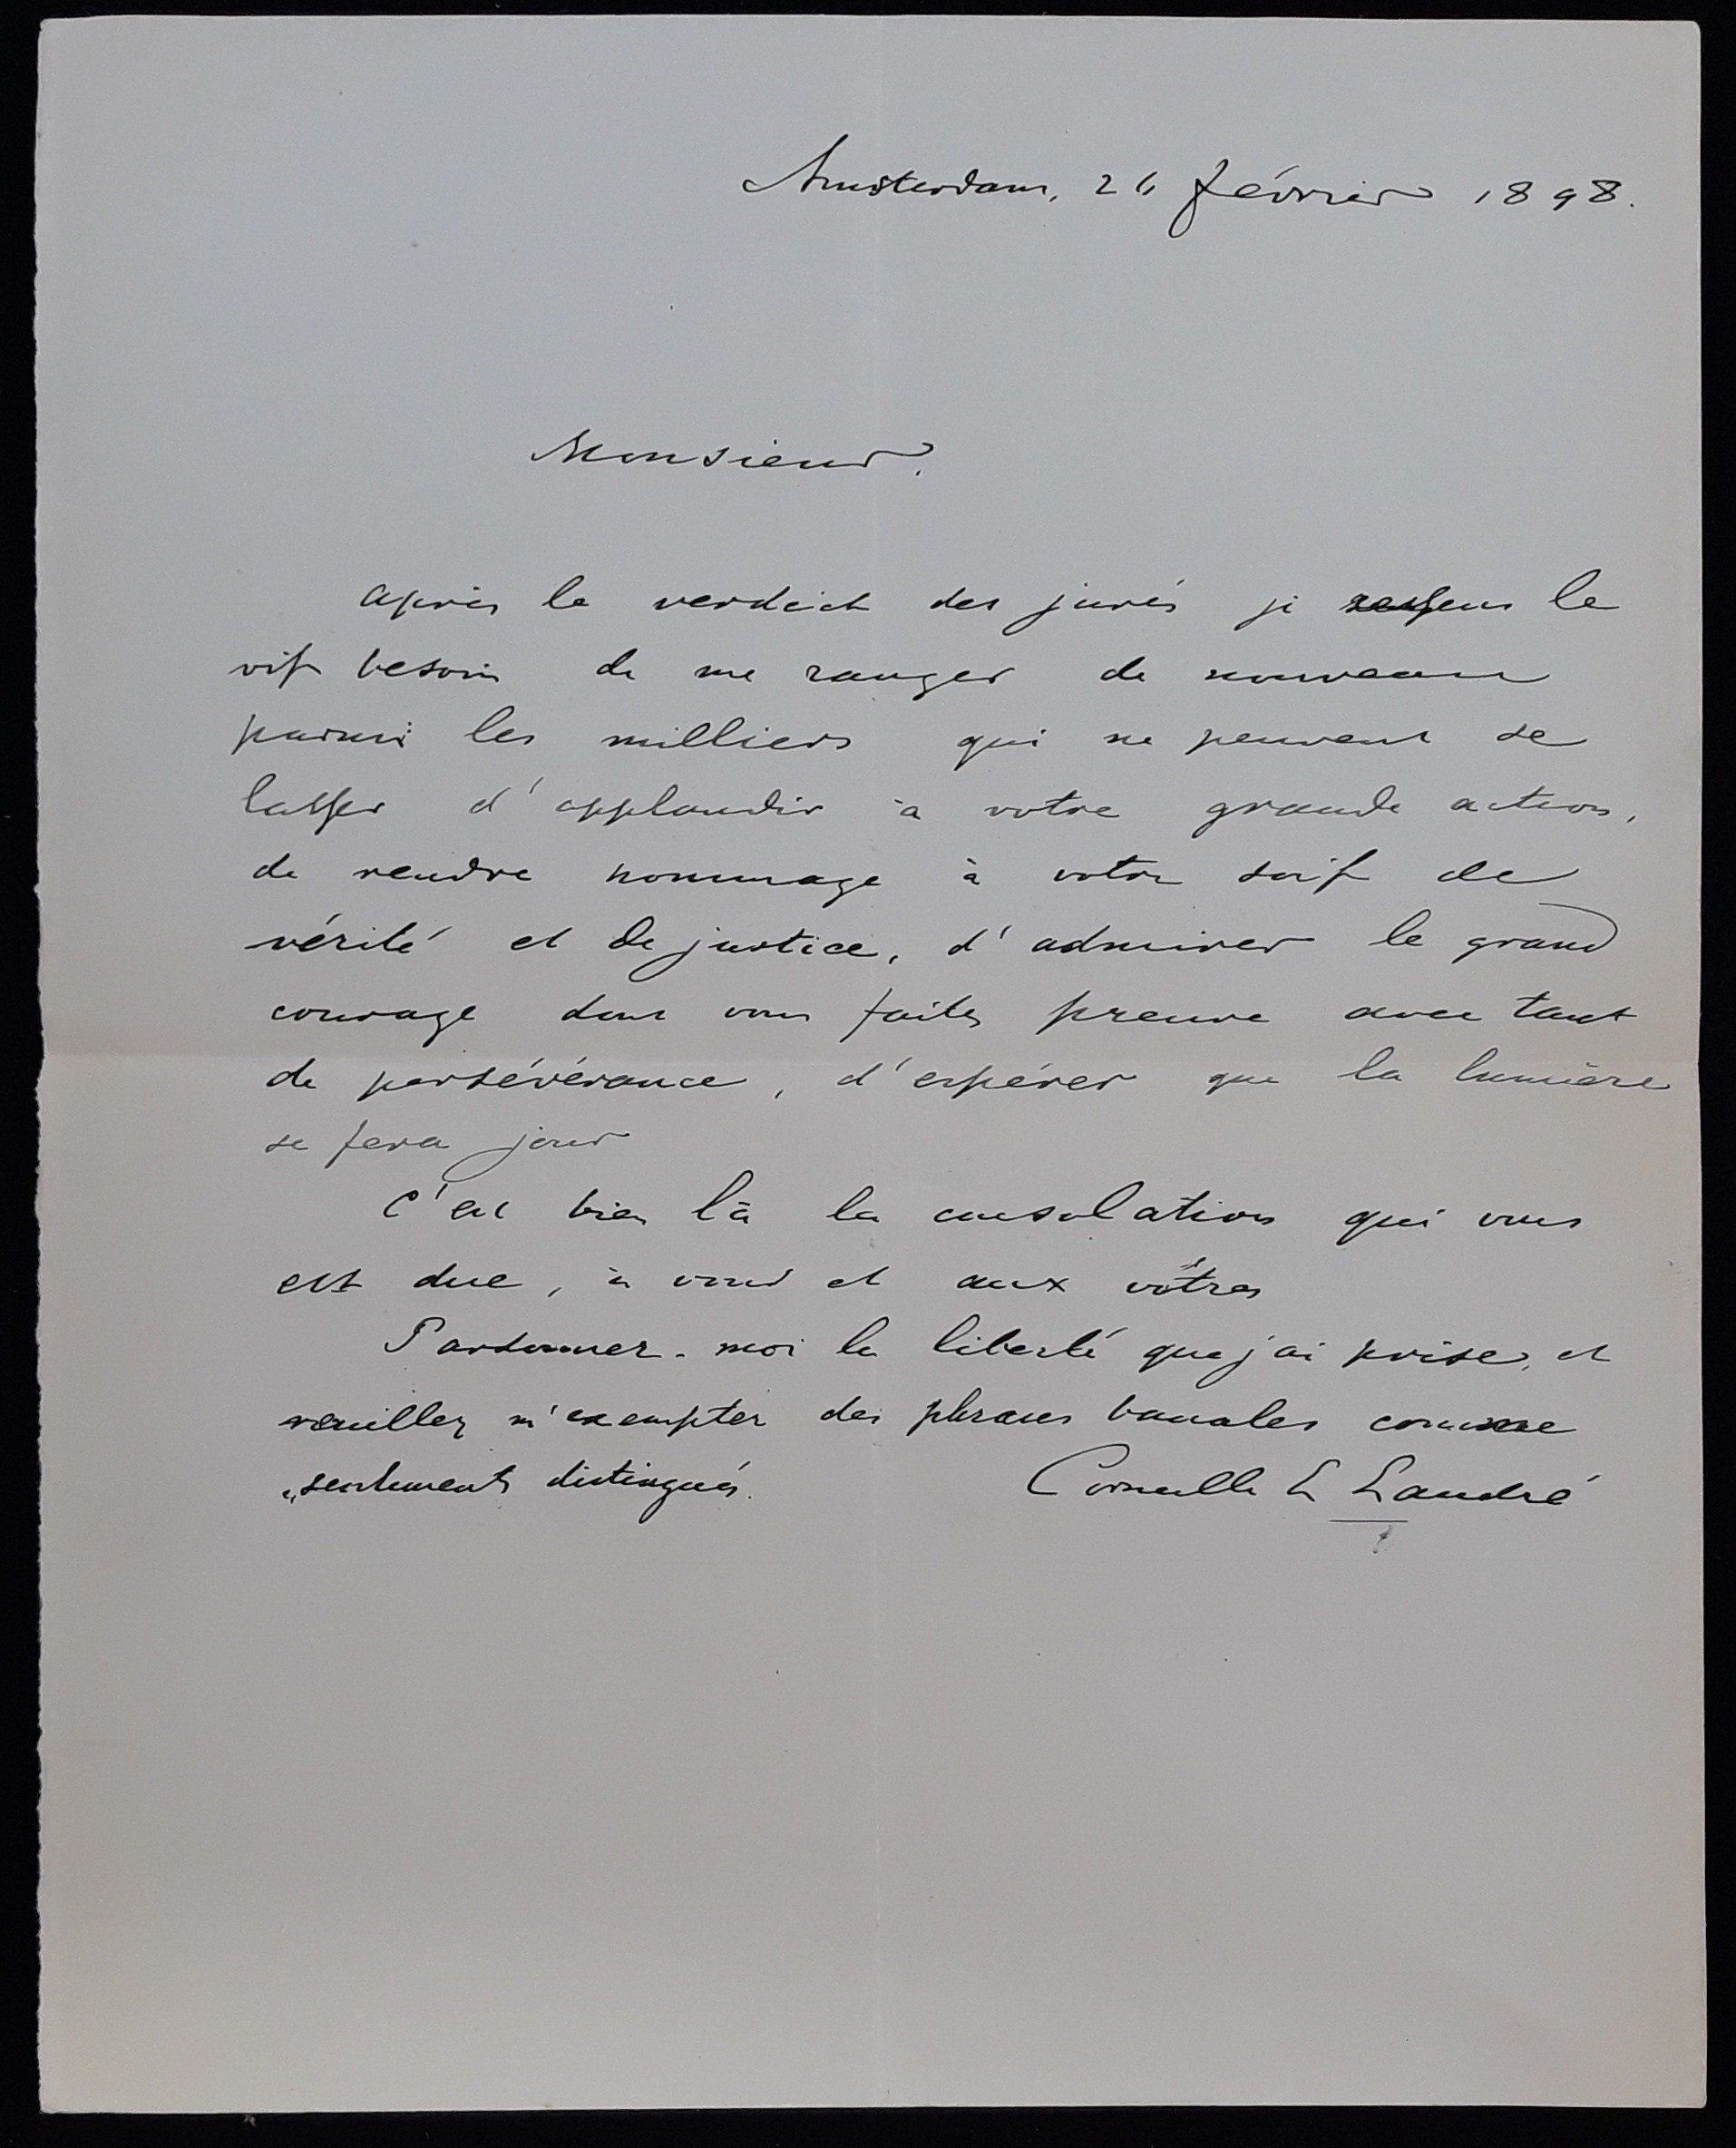 Amsterdam, 24 février 1898.
Monsieur,
après le verdict des jurés je ressens le
vif besoin de me ranger de nouveau
parmi les milliers qui ne peuvent se
lasser d'applaudir à votre grande action,
de rendre hommage à votre soif de
vérité et de justice, d'admirer le grand
courage dont vous faites preuve avec tant
de persévérance, d'espérer que la lumière
se fera jour
C'est bien là la consolation qui vous
est due, à vous et aux vôtres
Pardonnez-moi la liberté que j'ai prise, et
veuillez m'exempter des phrases banales comme
„sentiments distingués.
Corneille L Landré